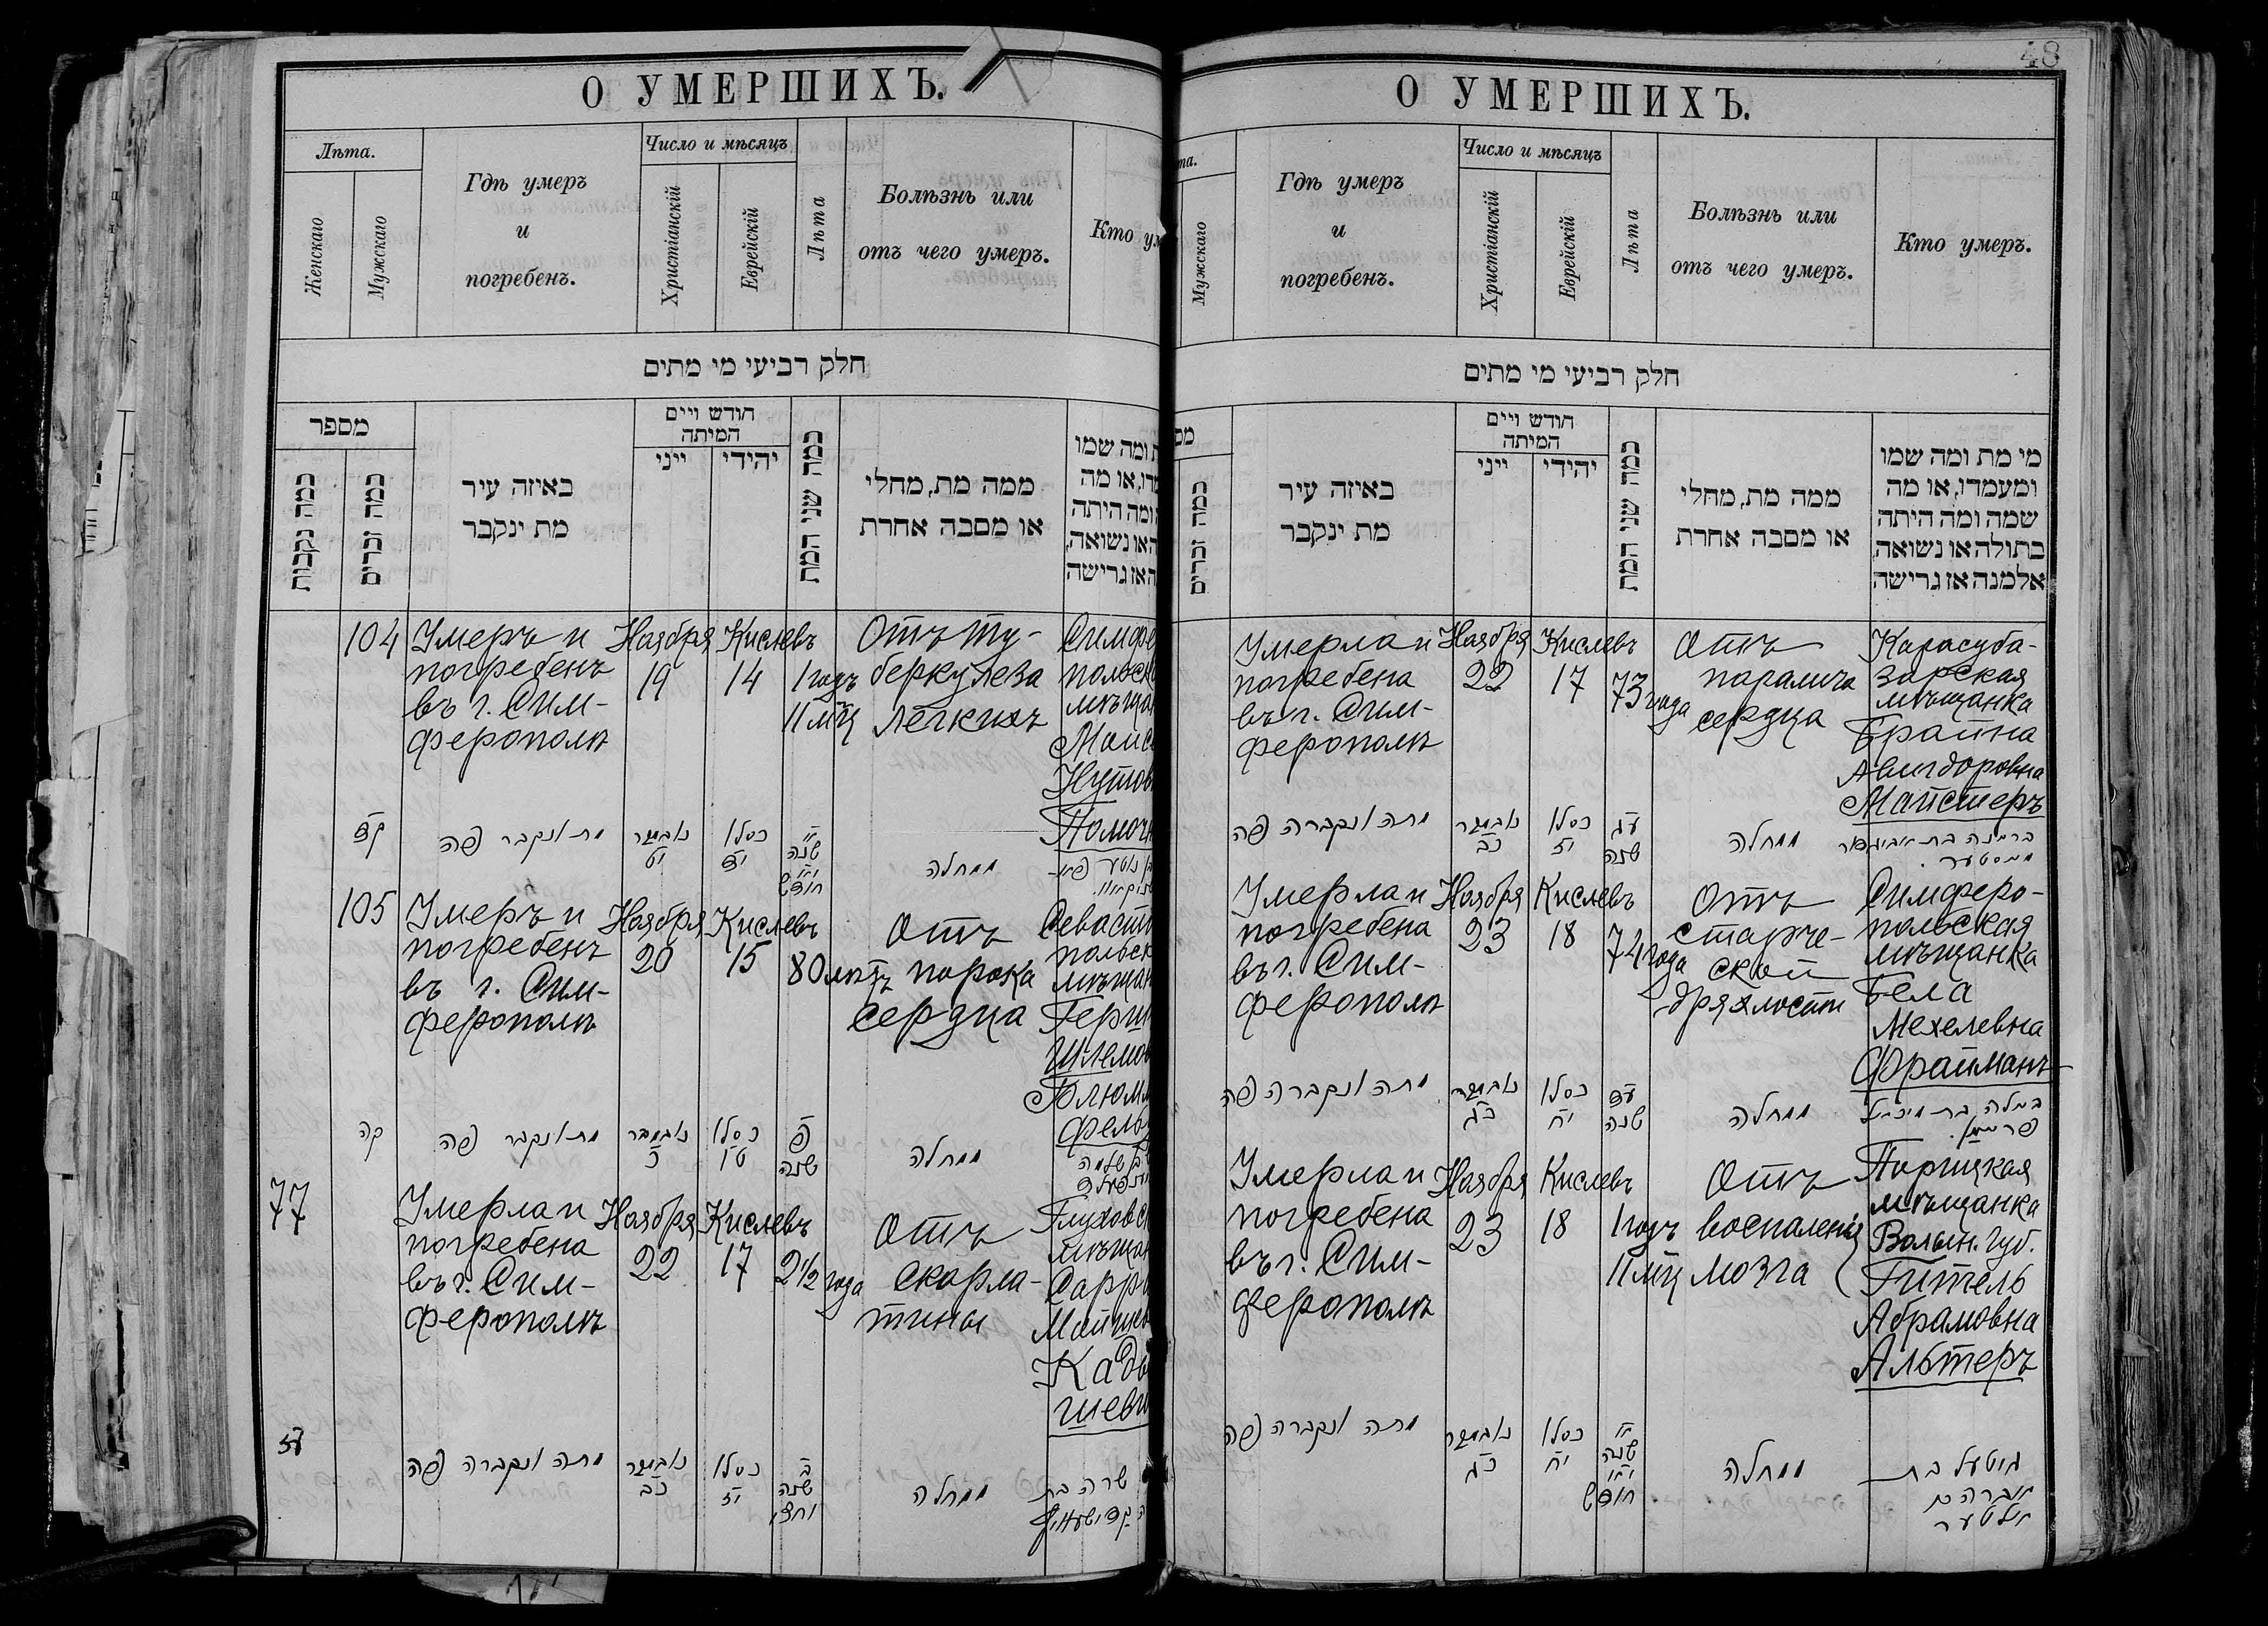 О УМЕРШИХЪ.
Лѣта.
Женскаго
Мужскаго
Гдѣ умеръ
и
погребенъ.
Число и мѣсяцъ
Христіанскій
Еврейскій
Лѣта
Болѣзнь или
отъ чего умеръ.
Кто ум
חלק רביעי מי מתים
מספר
כמה נקבות
כמה זכרים
באיזה עיר
מת ינקבר
חודש ויים
המיתה
ייני
יהידי
כמה שני המת
ממה מת, מחלי
או מסבה אחרת
ת ומה שמו
מדו, או מה
ומה היתה
ה או נשואה,
ה אז גרישה
104
Умеръ и
погребенъ
въ г. Сим-
ферополѣ
Ноября
19
Кислевъ
14
1 годъ
11 мц
Отъ ту-
беркулеза
легкихъ
Симфе
польск
мѣщан
Моис
Нутов
Помоч
קד
מת ונקבר פה
נאבמבר
יט
כסלו
יד
שנה
חודש
ממחלה
105
Умеръ и
погребенъ
въ г. Сим-
ферополѣ
Ноября
20
Кислевъ
15
80 лѣтъ
Отъ
порока
сердца
Севасто
польск
мѣщан
Герш
Шлемов
Блюм
фельд
קה
מת ונקבר פה
נאבמבר
כ
כסלו
טו
פ
שנה
ממחלה
77
Умерла и
погребена
въ г. Сим-
ферополѣ
Ноября
22
Кислевъ
17
2½ года
Отъ
скарла-
тины
Глуховс
мѣщан
Сарра
Кады
шеви
עז
מתה ונקברה פה
נאבמבר
כב
כסלו
יז
ב
שנה
וחצי
ממחלה
שרה בת
48
О УМЕРШИХЪ.
та.
Мужскаго
Гдѣ умеръ
и
погребенъ.
Число и мѣсяцъ
Христіанскій
Еврейскій
Лѣта
Болѣзнь или
отъ чего умеръ.
Кто умеръ.
חלק רביעי מי מתים
מס
כמה זכרים
באיזה עיר
מת ינקבר
חודש ויים
המיתה
ייני
יהידי
כמה שני המת
ממה מת, מחלי
או מסבה אחרת
מי מת ומה שמו
ומעמדו, או מה
שמה ומה היתה
בתולה או נשואה,
אלמנה אז גרישה
Умерла и
погребена
въ г. Сим-
ферополѣ
Ноября
22
Кислевъ
17
73 года
Отъ
паралича
сердца
Карасуба-
зарская
мѣщанка
Брайна
Авигдоровна
Майстеръ
מתה ונקברה פה
נאבמבר
כב
כסלו
יז
עג
שנה
ממחלה
Умерла и
погребена
въ г. Сим-
ферополѣ
Ноября
23
Кислевъ
18
74 года
Отъ
старче-
ской
дряхлости
Симферо-
польская
мѣщанка
Бела
Мехелевна
Фрайманъ
מתה ונקברה פה
נאבמבר
כג
כסלו
יח
עד
שנה
ממחלה
Умерла и
погребена
въ г. Сим-
ферополѣ
Ноября
23
Кислевъ
18
1 годъ
11 мц
Отъ
воспаленія
мозга
Порицкая
мѣщанка
Волын. губ.
Гитель
Абрамовна
Альтеръ
מתה ונקברה פה
נאבמבר
כג
כסלו
יח
שנה
חודש
ממחלה
גיטעל בת
אברהם
אלטער